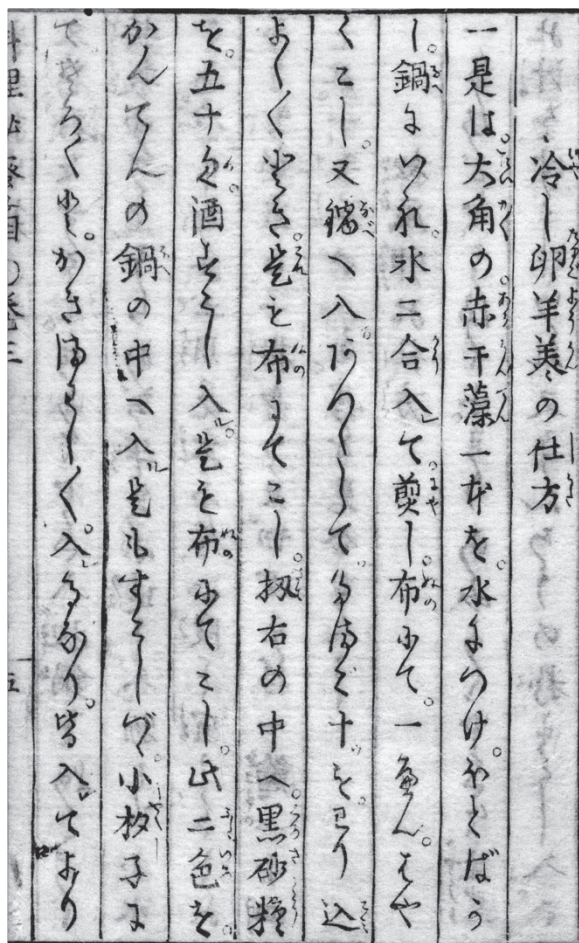 冷し卵羊羹の仕方
一是は。大角の。赤干藻一本を。水につけ。ほとばか
し。鍋にいれ。水二合入て。煎し。布にて。一へん。はや
くこし。又鍋へ入。あつくして。たまご十を。わり込
よく〱とき。是を布にてこし。扨右の中へ。黒砂糖
を。五十匁。酒すこし入。是を布にてこし。此二色を。
かんてんの鍋の中へ入。是もすこしづゝ小杓子に
てそろ〱と。かきまわし〱。入るなり。皆入てより